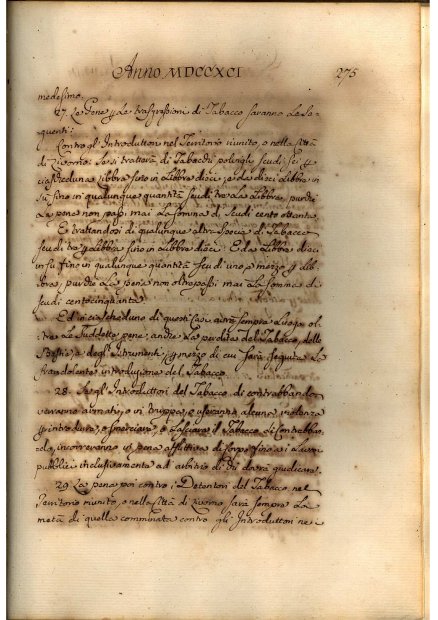 Anno MDCCXCI 275
medesimo.
27. Le Pene p le trasgressioni di Tabacco saranno le se-
quenti:
Contro gl' Introduttori nel Territorio riunito, o nella Città
di Livorno: se si tratterà di Tabacchi scudi sei p
ciascheduna libbra fino in libbre dieci, e da dieci libbre in
su fino in qualunque quantità scudi tre la libbra, purchè
la pena non passi mai la somma di scudi cento ottanta.
E trattandosi di qualunque altra specie di Tabacco
scudi tre p libbra fino in libbre dieci: E da libbre dieci
in su fino in qualunque quantità scudi uno e mezzo p lib-
bra, purchè la pena non oltrepassi mai la somma di
scudi centocinquanta.
Ed in ciascheduno di questi casi avrà sempre luogo ol-
tre le suddette pene, anche la perdita del Tabacco, delle
Bestie, e degl' Istrumenti p mezzo di cui sarà seguita la
fraudolenta introduzione del Tabacco.
28. Se gl' Introduttori del Tabacco di contrabbando
verranno armati, o in truppa, e useranno alcuna violenza
p introdurre, e il Tabacco di Contrabban-
do, incorreranno in pena afflittiva di corpo fino ai lavori
pubblici inclusivamente ad arbitrio di chi dovrà giudicare.
29. La pena poi contro i Detentori del Tabacco nel
Territorio riunito, o nella Città di Livorno sarà sempre la
metà di quella comminata contro gli Introduttori nei